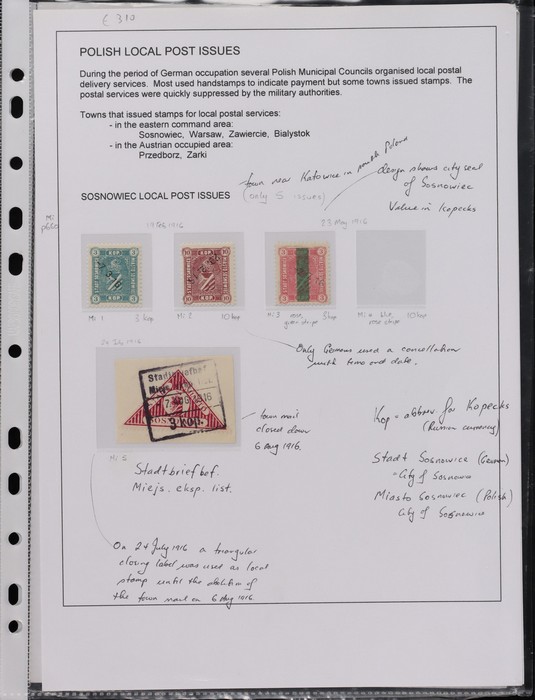 € 310
POLISH LOCAL POST ISSUES
During the period of German occupation several Polish Municipal Councils organised local postal
delivery services. Most used handstamps to indicate payment but some towns issued stamps. The
postal services were quickly suppressed by the military authorities.
Towns that issued stamps for local postal services:
- in the eastern command area:
Sosnowiec, Warsaw, Zawiercie, Bialystok
- in the Austrian occupied area:
Przedborz, Zarki
SOSNOWIEC LOCAL POST ISSUES
town near Katowice in south Poland
(only 5 issues)
design shows city seal
of Sosnowiec
Value in Kopecks
Mi
p660
19 Feb 1916
23 May 1916
3 3
3 KOP 3
10 10
10 KOP 10
3 3
3 3
Mi 1 3 kop
Mi 2 10 kop
Mi 3 3 kop
green stripe
Mi 4 blue 10 kop
rose stripe
Only Germans used a cancellation
with time and date.
24 July 1916
Stadtbriefbof
Miejs.
AUG 1916
3 kop.
Mi 5
town mail
closed down
6 Aug 1916.
Stadtbriefbof.
Miejs. eksp. list.
Kop = abbrev. for Kopecks
(Russian currency)
Stadt Sosnowice (German)
= City of Sosnowice
Miasto Sosnowiec (Polish)
City of Sosnowice
On 24 July 1916 a triangular
closing label was used as local
stamp until the abolition of
the town mail on 6 Aug 1916